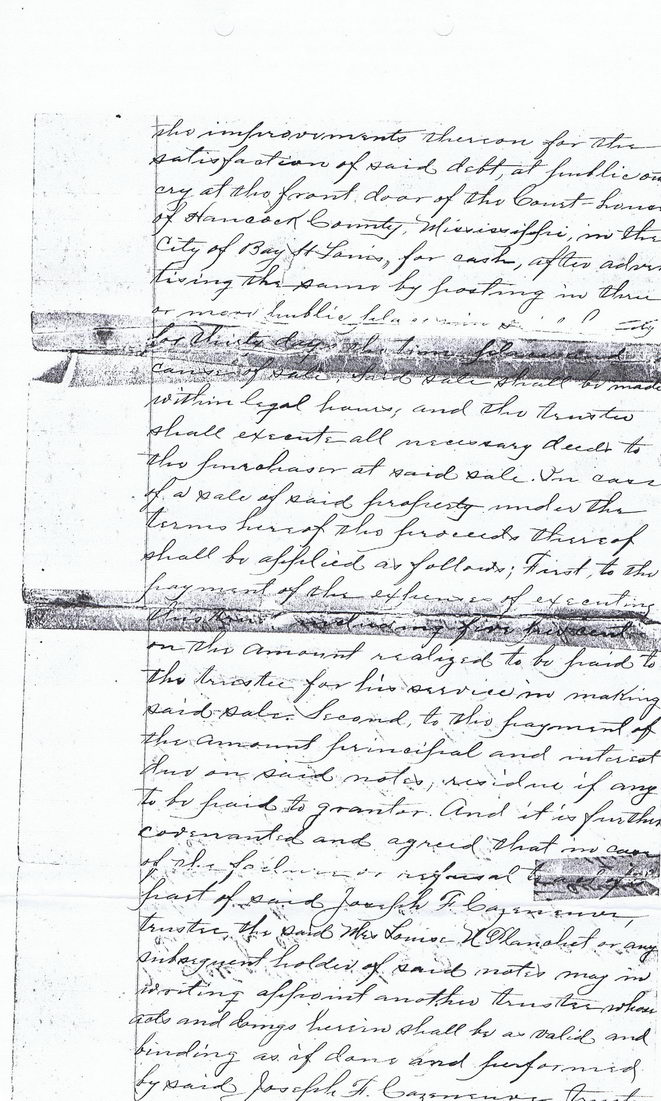 the improvements thereon for the
satisfaction of said debt, at public out
cry at the front door of the Court-house
of Hancock County, Mississippi, in the
City of Bay St Louis, for cash, after adver
tising the same by posting in three
or more public places in
for thirty days the time place and
cause of sale. Said sale shall be made
within legal hours, and the trustee
shall execute all necessary deeds to
the purchaser at said sale. In case
of a sale of said property under the
terms hereof the proceeds thereof
shall be applied as follows; First, to the
payment of the expenses of executing
this trust including five per cent
on the amount realized to be paid to
the trustee for his service in making
said sale. Second, to the payment of
the amount principal and interest
due on said notes, residue if any
to be paid to grantor. And it is further
covenanted and agreed that in case
of the failure or refusal to act
part of said Joseph F. Cazeneuve,
trustee, the said Mrs Louise N Blanchet or any
subsequent holder of said notes may in
writing appoint another trustee whose
acts and doings herein shall be as valid and
binding as if done and performed
by said Joseph F. Cazeneuve trust